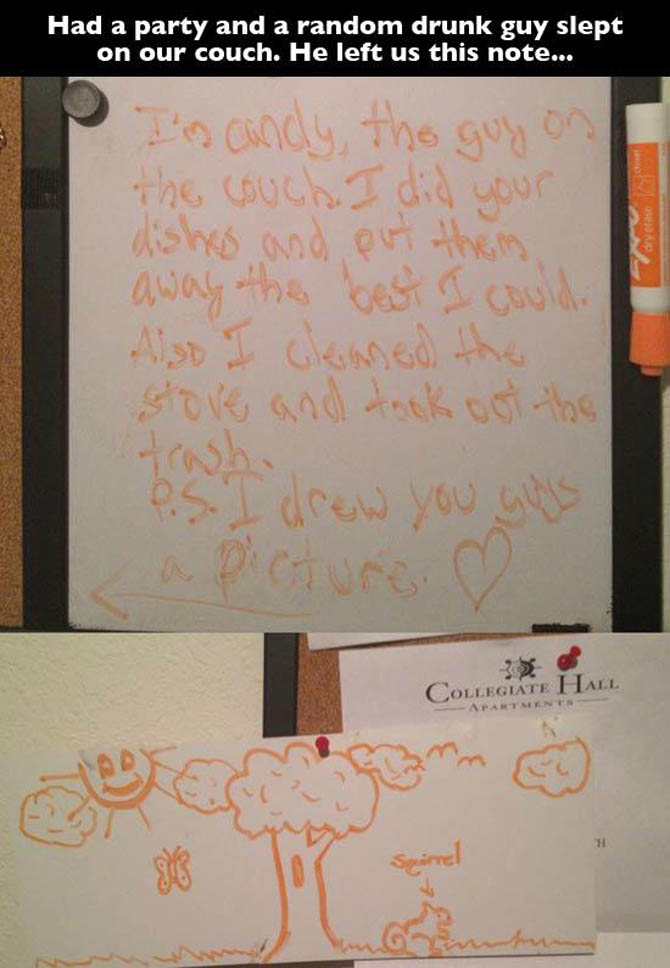 Had a party and a random drunk guy slept
on our couch. He left us this note...
I'm andy, the guy on
the couch. I did your
dishes and put them
away the best I could.
Also I cleaned the
stove and took out the
trash.
P.S. I drew you guys
a picture.
EXPO
dry erase
chisel
COLLEGIATE HALL
APARTMENTS
squirrel